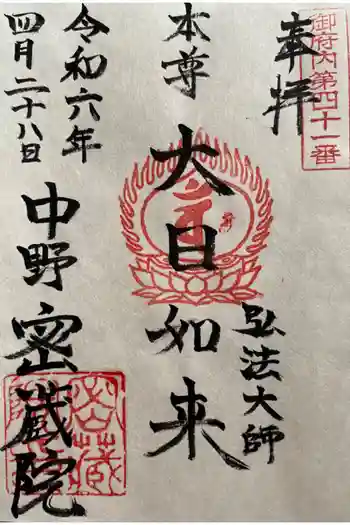 御府内第四十一番
奉拝
本尊 大日如来
弘法大師
令和六年
四月二十八日
中野 密蔵院